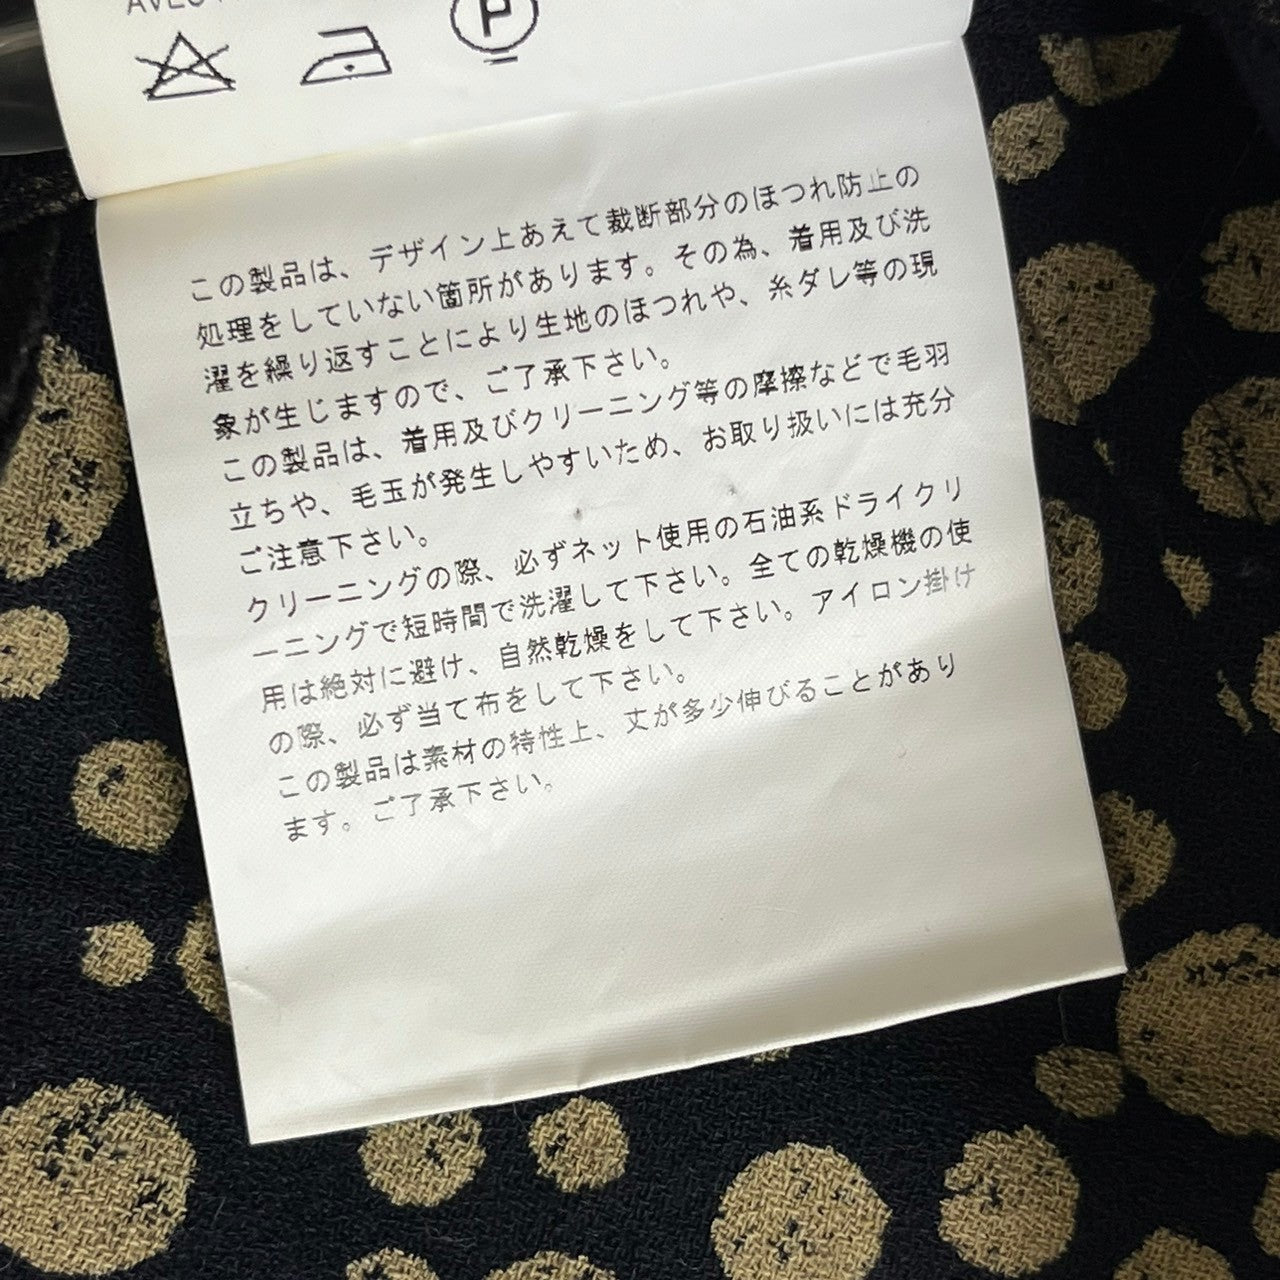 この製品は、デザイン上あえて裁断部分のほつれ防止の
処理をしていない箇所があります。その為、着用及び洗
濯を繰り返すことにより生地のほつれや、糸ダレ等の現
象が生じますので、ご了承下さい。
この製品は、着用及びクリーニング等の摩擦などで毛羽
立ちや、毛玉が発生しやすいため、お取り扱いには充分
ご注意下さい。
クリーニングの際、必ずネット使用の石油系ドライクリ
ーニングで短時間で洗濯して下さい。全ての乾燥機の使
用は絶対に避け、自然乾燥をして下さい。アイロン掛け
の際、必ず当て布をして下さい。
この製品は素材の特性上、丈が多少伸びることがあり
ます。ご了承下さい。